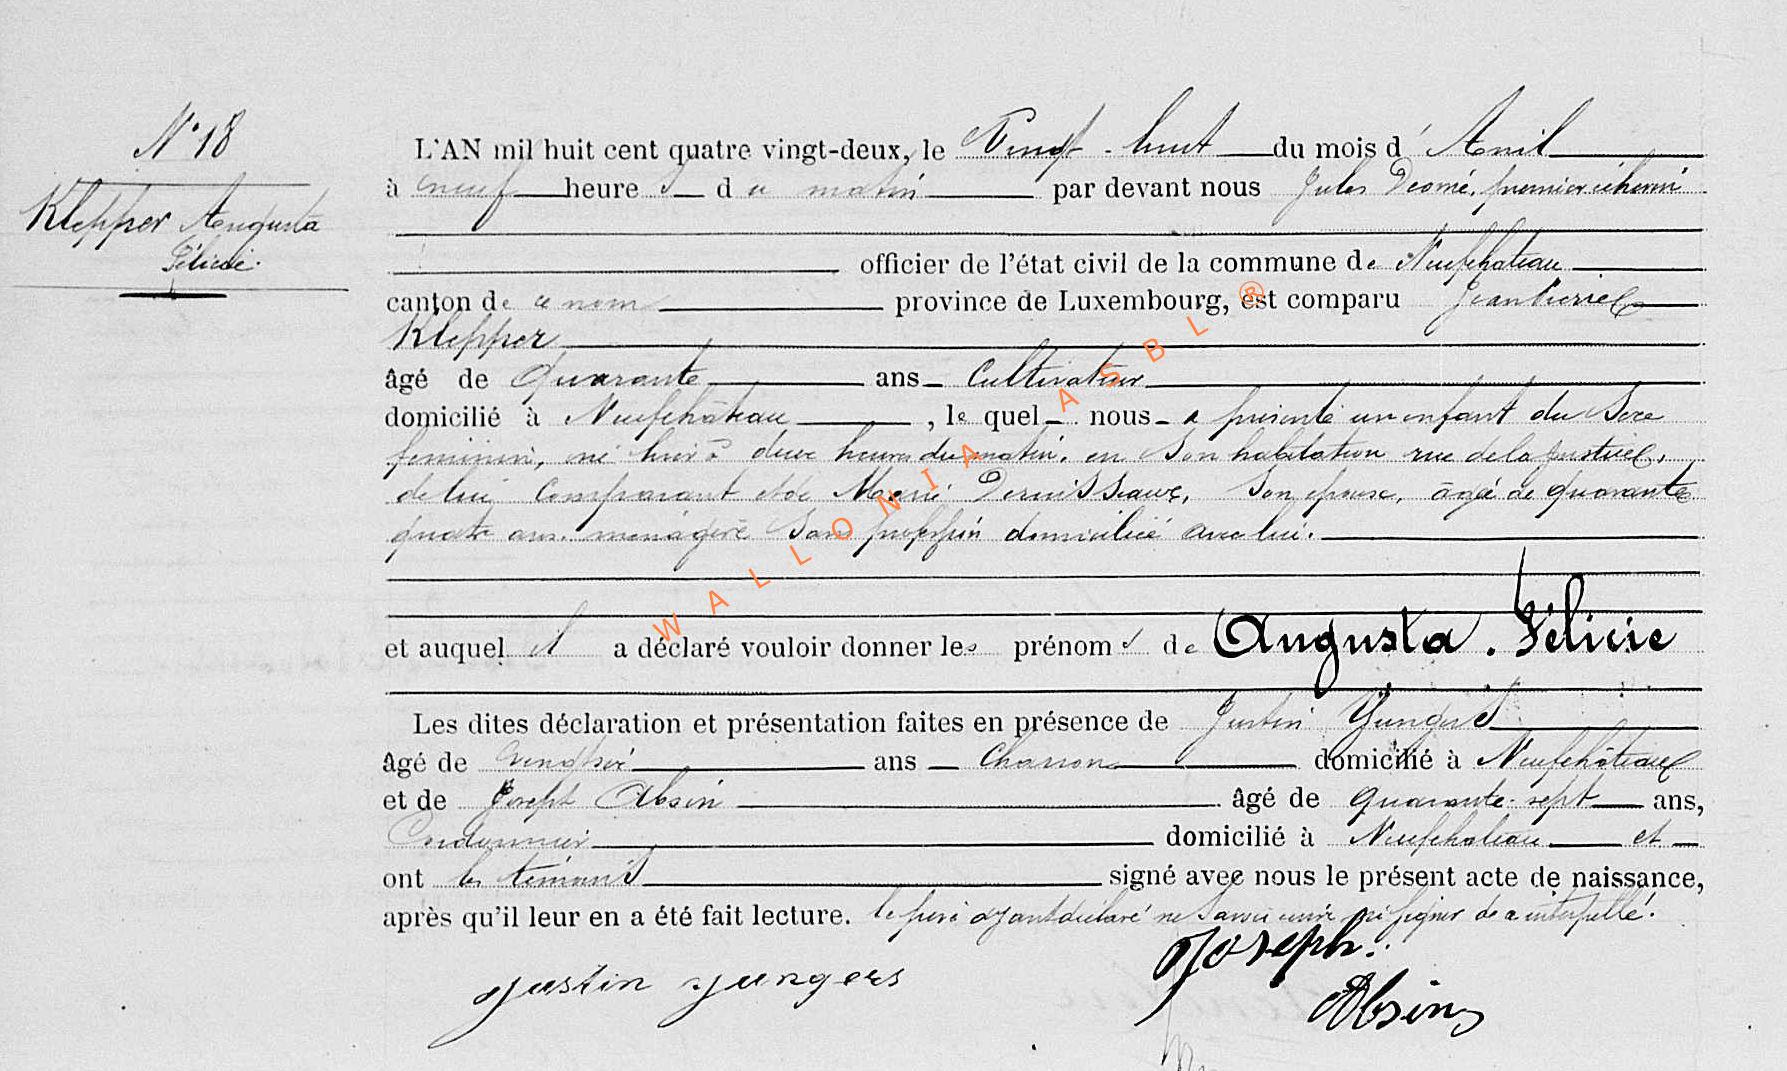 N° 18
Klepper Augusta
Félicie.
L'AN mil huit cent quatre vingt-deux, le Vingt-huit du mois d' Avril
à neuf heure s du matin par devant nous Jules Deomé, premier échevin
officier de l'état civil de la commune de Neufchateau
canton de ce nom province de Luxembourg, est comparu Jean Pierre
Klepper
âgé de Quarante ans Cultivateur
domicilié à Neufchâteau, le quel nous a présenté un enfant du sexe
feminin, né hier à deux heures du matin, en son habitation rue de la justice,
de lui comparant et de Marie Dernisseaux, son epouse, âgée de quarante
quatre ans. menagère sans profession domiciliée avec lui.
et auquel il a déclaré vouloir donner les prénoms de Augusta. Félicie
Les dites déclaration et présentation faites en présence de Justin Yungers
âgé de vingt six ans Charron domicilié à Neufchâteau
et de Joseph Absin âgé de quarante-sept ans,
Cordonnier domicilié à Neufchateau et
ont les témoins signé avec nous le présent acte de naissance,
après qu'il leur en a été fait lecture. le père ayant déclaré ne savoir écrire ni signer de ce interpellé.
Justin Jungers
Joseph.
Absin
WALLONIA ASBL ®